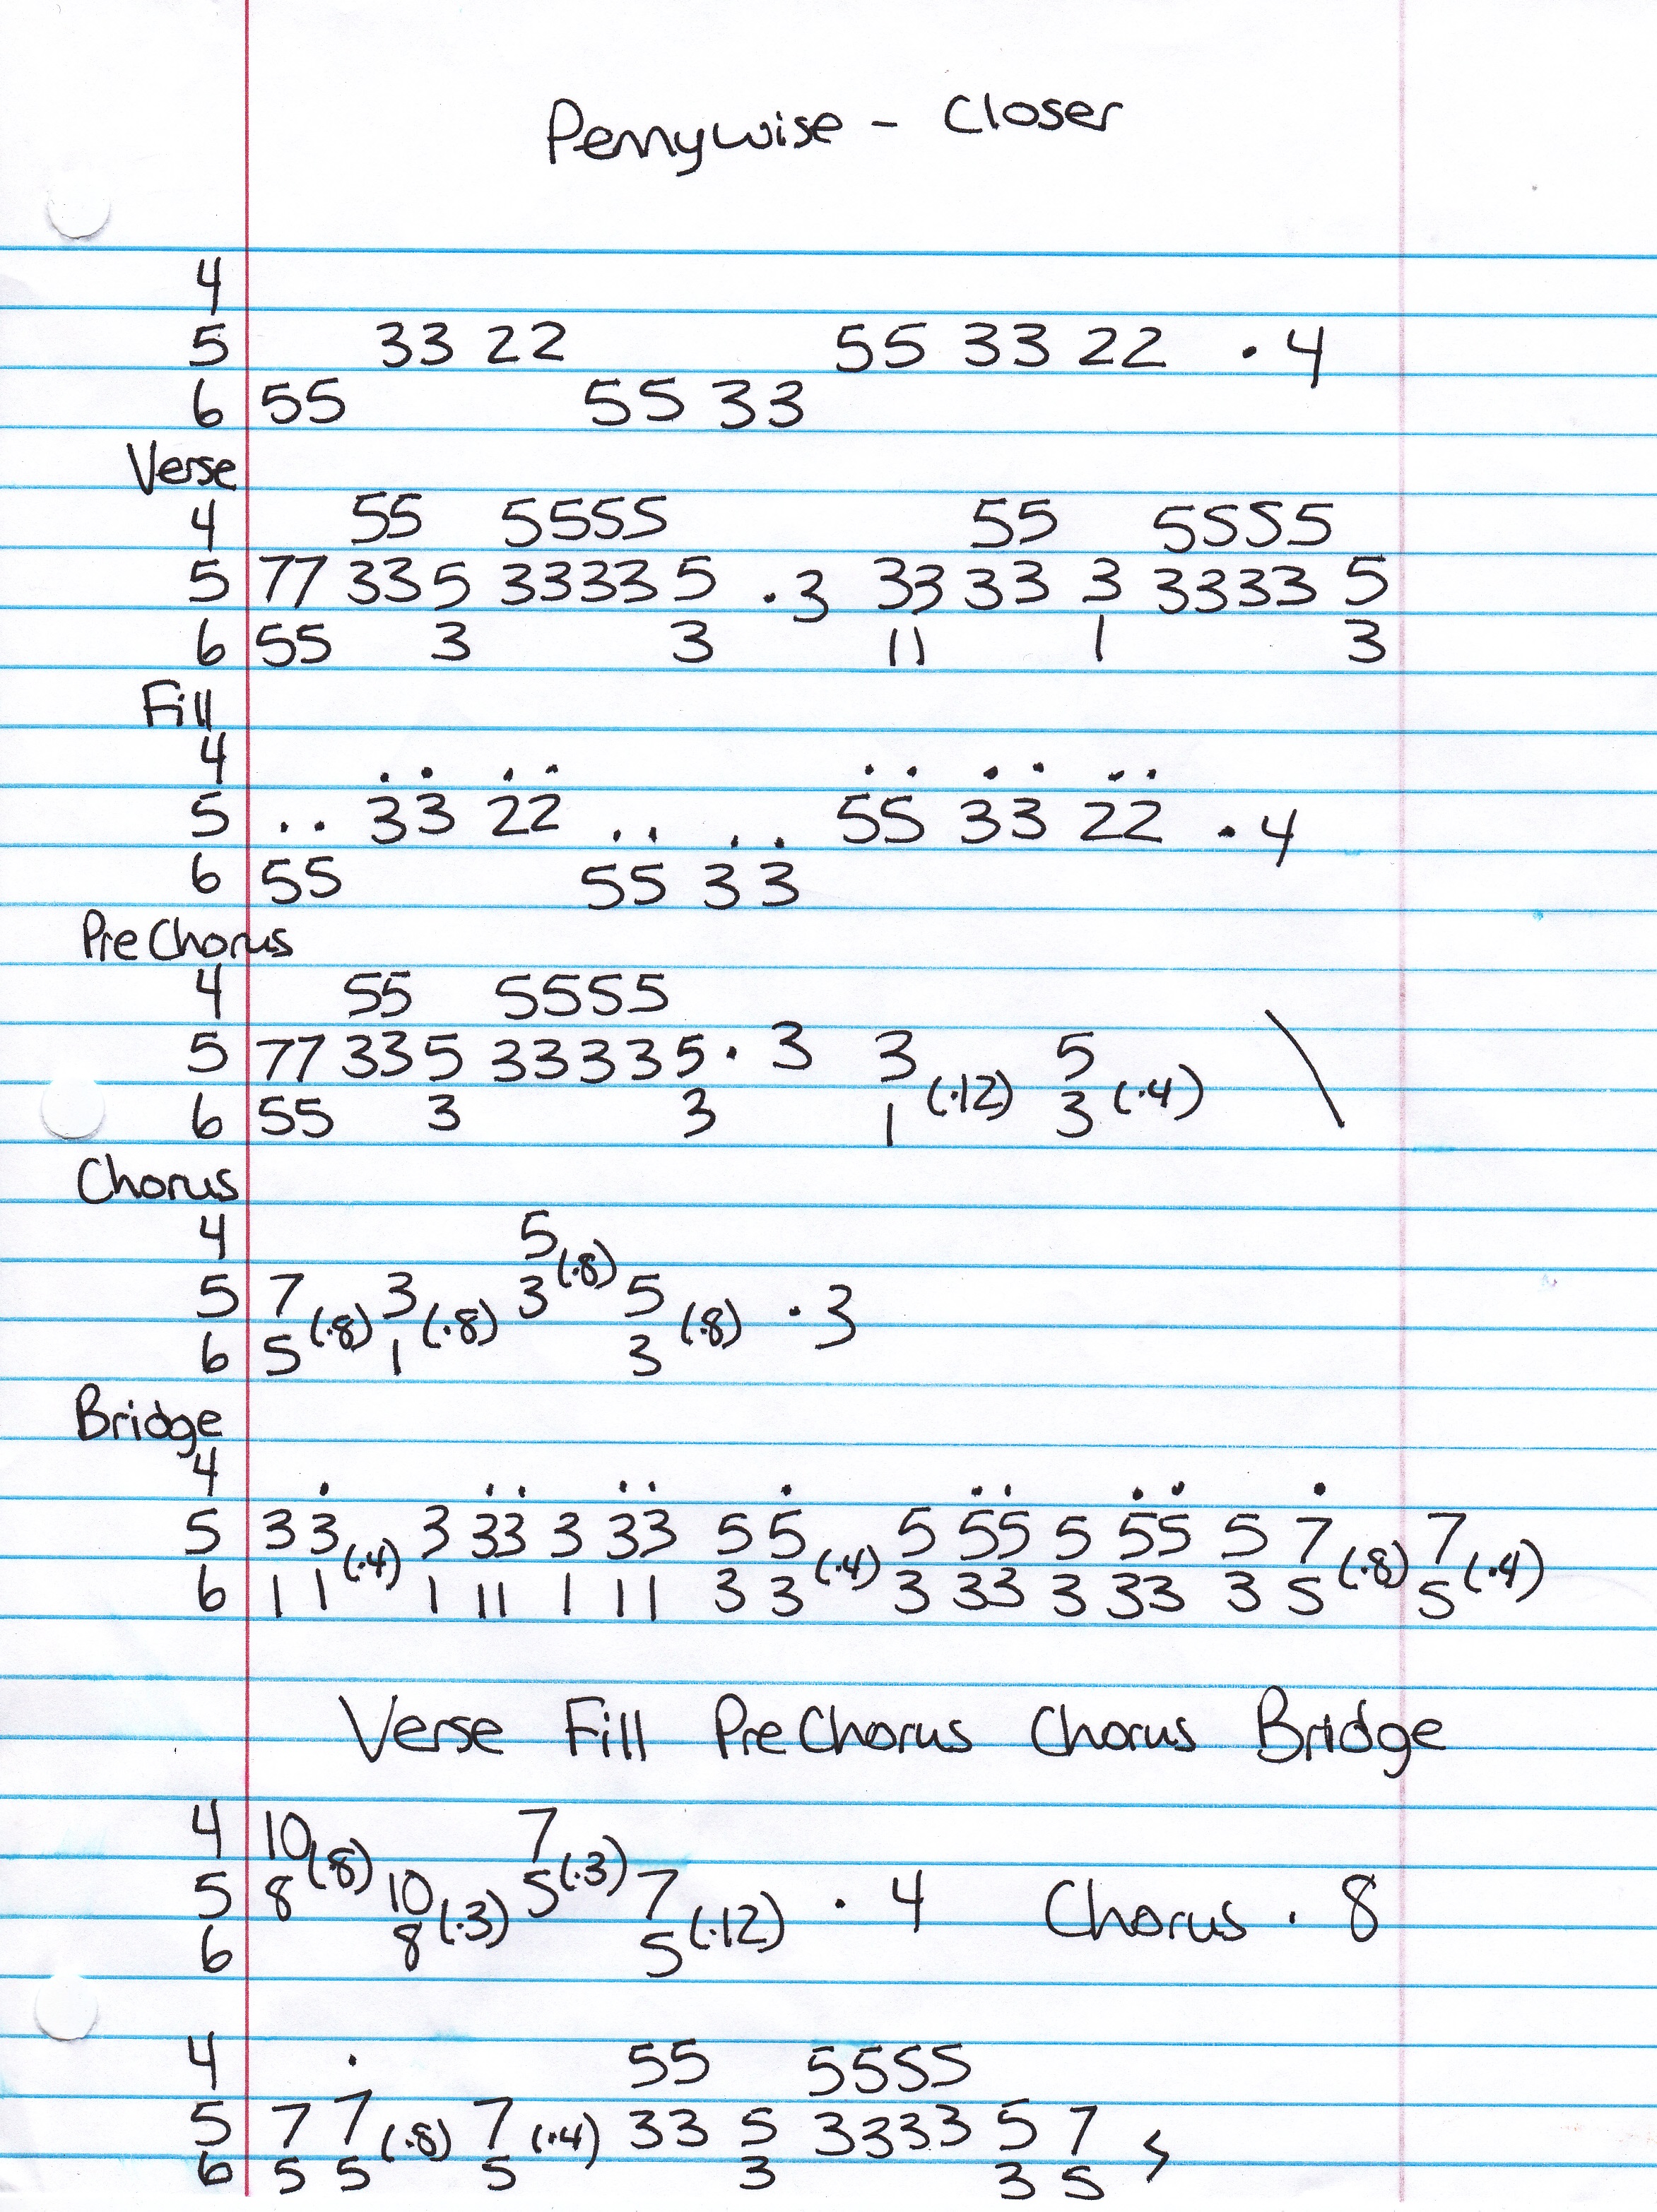 Pennywise - Closer
4
5 33 22 55 33 22 · 4
6 55 55 33
Verse
4 55 5555 55 5555
5 77 33 5 3333 5 · 3 33 33 3 3333 5
6 55 3 3 11 1 3
Fill
4 · · · · · · · · · ·
5 · · 33 22 · · · · 55 33 22 · 4
6 55 55 33
PreChorus
4 55 5555
5 77 33 5 3333 5 · 3 3 5 \
6 55 3 3 1 (·12) 3 (·4)
Chorus
4 5 (·8)
5 7 3 3 5 · 3
6 5 (·8) 1 (·8) 3 (·8)
Bridge
4 · · · · · · · · · · ·
5 3 3 (·4) 3 33 3 33 5 5 (·4) 5 55 5 55 5 7 (·8) 7 (·4)
6 1 1 1 11 1 11 3 3 3 33 3 33 3 5 5
Verse Fill PreChorus Chorus Bridge
4 10 (·8) 7 (·3)
5 8 10 (·3) 5 7 (·12) · 4 Chorus · 8
6 8 5
4 · 55 5555
5 7 7 (·8) 7 (·4) 33 5 3333 5 7
6 5 5 5 3 3 5